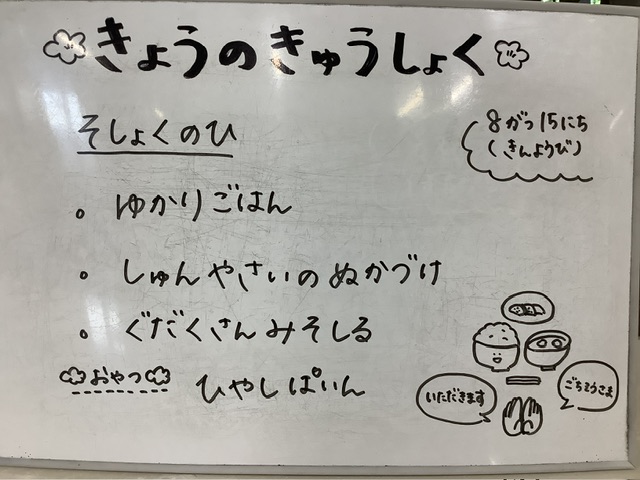 きょうのきゅうしょく
8がつ15にち
(きんようび)
そしょくのひ
・ゆかりごはん
・しゅんやさいのぬかづけ
・ぐだくさんみそしる
おやつ ひやしぱいん
いただきます
ごちそうさま